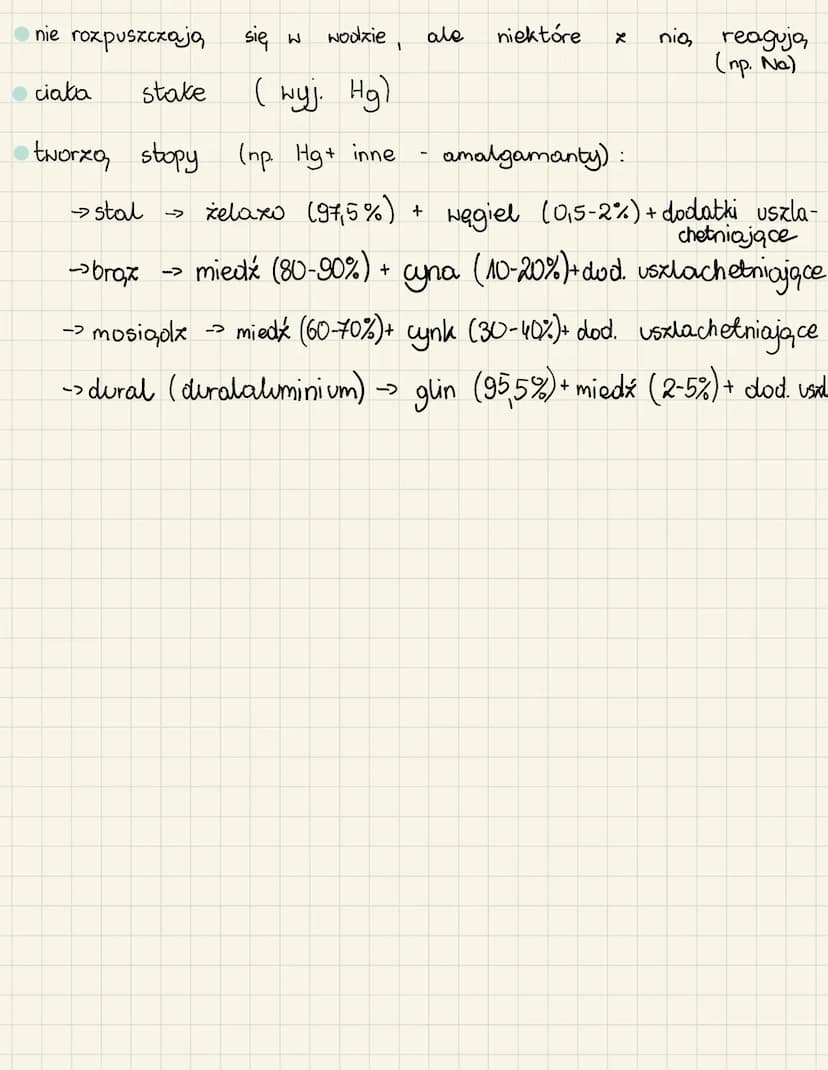 nie rozpuszczają się w wodzie, ale niektóre z nią reagują
(np. Na)
ciała stałe (wyj. Hg)
tworzą stopy (np. Hg + inne - amalgamanty):
→ stal → żelazo (97,5%) + węgiel (0,5-2%) + dodatki uszla-
chetniające
→ brąz → miedź (80-90%) + cyna (10-20%) + dod. uszlachetniające
→ mosiądz → miedź (60-70%) + cynk (30-40%) + dod. uszlachetniające
→ dural (duraluminium) → glin (95,5%) + miedź (2-5%) + dod. uszl